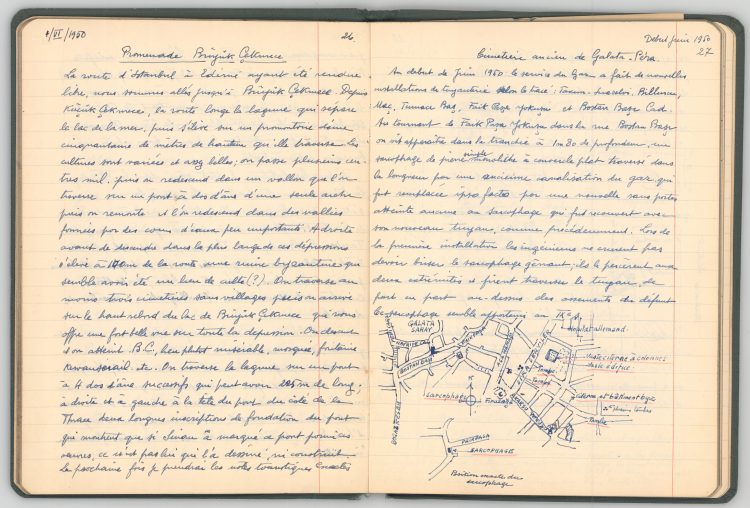 1/VI/1950
26
Promenade Büyük Çekmece
La route d'Istanbul à Edirné ayant été rendue
libre, nous sommes allés jusqu'à Büyük Çekmece. Depuis
Küçük Çekmece, la route longe la lagune qui sépare
le lac de la mer, puis s'élève sur un promontoire d'une
cinquantaine de mètres de hauteur qu'elle traverse. Les
cultures sont variées et assez belles; on passe plusieurs
puis on redescend dans un vallon que l'on
traverse sur un pont à dos d'âne d'une seule arche
puis on remonte et l'on redescend dans des vallées
formées par des cours d'eaux peu importants. A droite
avant de descendre dans la plus large de ces dépressions
s'élève à 100m de la route une ruine byzantine qui
semble avoir été un lieu de culte (?). On traverse au
moins trois cimetières sans villages puis on arrive
sur le haut rebord du Lac de Büyük Çekmece qui nous
offre une fort belle vue sur toute la dépression. On descend
et on atteint B.C., lieu plutôt misérable, mosquée, fontaine
etc. On traverse la lagune sur un pont
à 4 dos d'âne successifs qui peut avoir de long;
à droite et à gauche à la tête du pont du côté de la
Thrace deux longues inscriptions de fondation du pont
qui montrent que si Sinan a marqué ce pont parmi ses
œuvres, ce n'est pas lui qui l'a dessiné, ni construit.
La prochaine fois je prendrai les notes exactes
Début Juin 1950
27
Cimetière ancien de Galata-Péra
Au début de Juin 1950 le service du Gaz a fait de nouvelles
installations de tuyauterie selon le tracé:
Maç, Turnacı Baş, Faik Paşa Yokuşu et Bostan Başı Cad.
Au tournant de Faik Paşa Yokuşu dans la rue Bostan Başı
on vit apparaître dans la tranchée à 1m30 de profondeur, un
sarcophage de pierre simple à couvercle plat traversé dans
la longueur par une ancienne canalisation du gaz qui
fut remplacée ipso facto par une nouvelle sans porter
atteinte aucune au sarcophage qui fut recouvert avec
son nouveau tuyau, comme précédemment. Lors de
la première installation les ingénieurs ne crurent pas
devoir briser le sarcophage gênant; ils le percèrent aux
deux extrémités et firent traverser le tuyau, de
part en part au-dessus des ossements du défunt
Le sarcophage semble appartenir au
GALATA
SARAY
Hôpital allemand
Vaste citerne à colonnes
BOSTAN BAŞI
Sarcophage
Firuzağa
SARCOPHAGE
Position exacte du
sarcophage